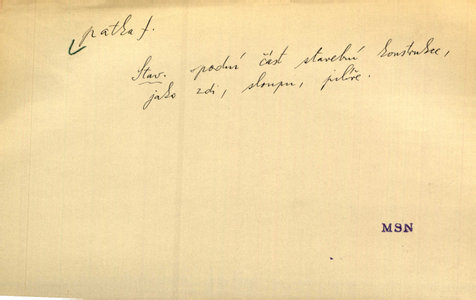 patka f.
Stav. spodní část stavební konstrukce,
jako zdi, sloupu, pilíře.
MSN